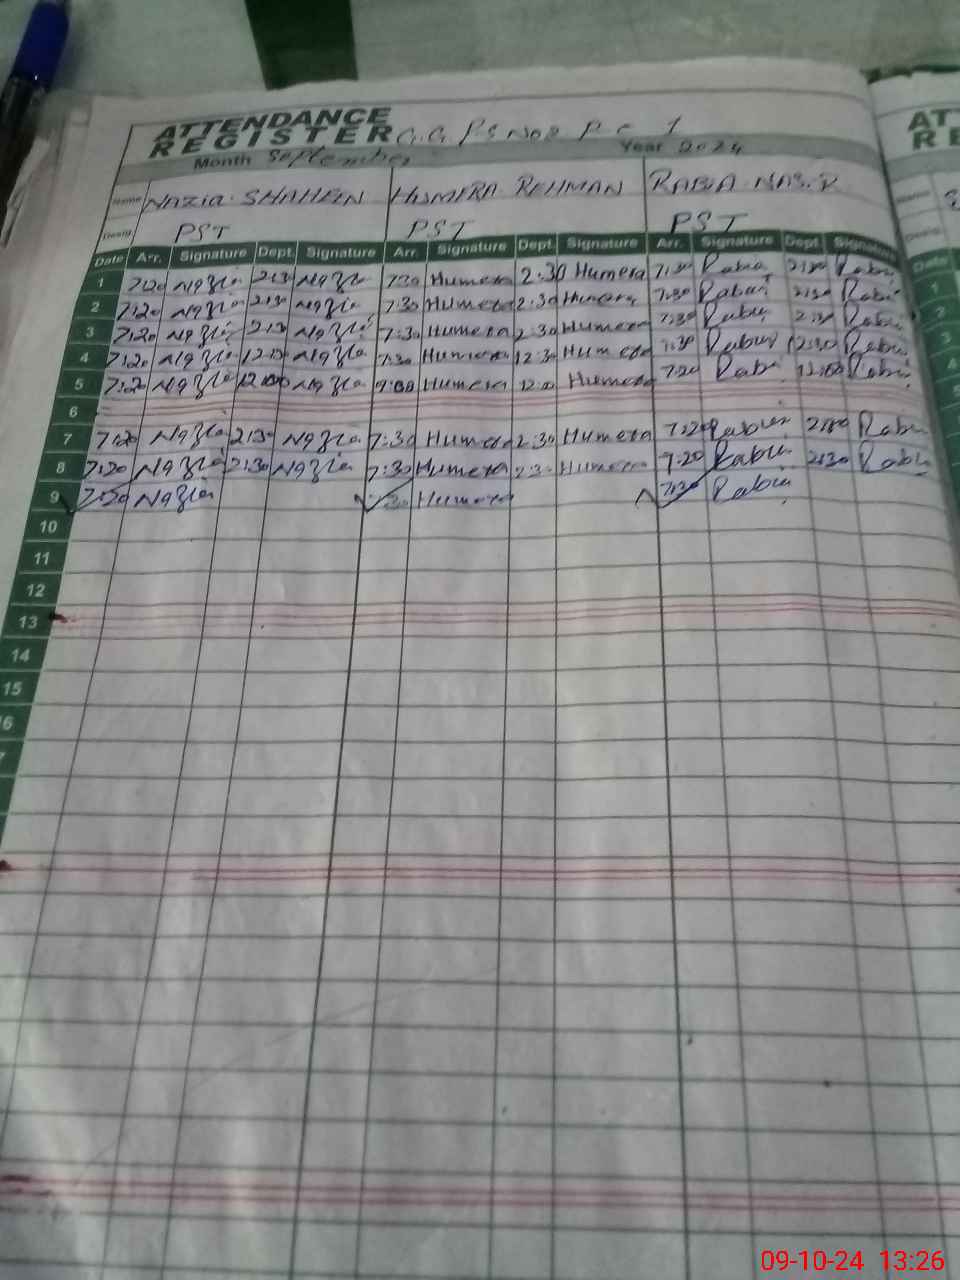 ATTENDANCE
REGISTER G.G PS NO2 P C 1
Month September Year 2024
Name Nazia SHAHEEN HUMERA REHMAN RABIA NASIR
Desig. PST PST PST
Date Arr. Signature Dept. Signature Arr. Signature Dept. Signature Arr. Signature Dept. Signature
1 7:20 Nazia 2:30 Nazia 7:30 Humera 2:30 Humera 7:30 Rabia 2:30 Rabia
2 7:20 Nazia 2:30 Nazia 7:30 Humera 2:30 Humera 7:30 Rabia 2:30 Rabia
3 7:20 Nazia 2:30 Nazia 7:30 Humera 2:30 Humera 7:30 Rabia 2:30 Rabia
4 7:20 Nazia 12:30 Nazia 7:30 Humera 12:30 Humera 7:30 Rabia 12:30 Rabia
5 7:20 Nazia 12:00 Nazia Humera 12:00 Humera 7:20 Rabia 12:00 Rabia
6
7 7:20 Nazia 2:30 Nazia 7:30 Humera 2:30 Humera 7:20 Rabia Rabia
8 7:20 Nazia 2:30 Nazia 7:30 Humera 2:30 Humera 7:20 Rabia 2:30 Rabia
9 7:20 Nazia 7:30 Humera 7:30 Rabia
10
11
12
13
14
15
6
7
AT
RE
Name
Desig.
Date
1
2
3
4
5
09-10-24 13:26